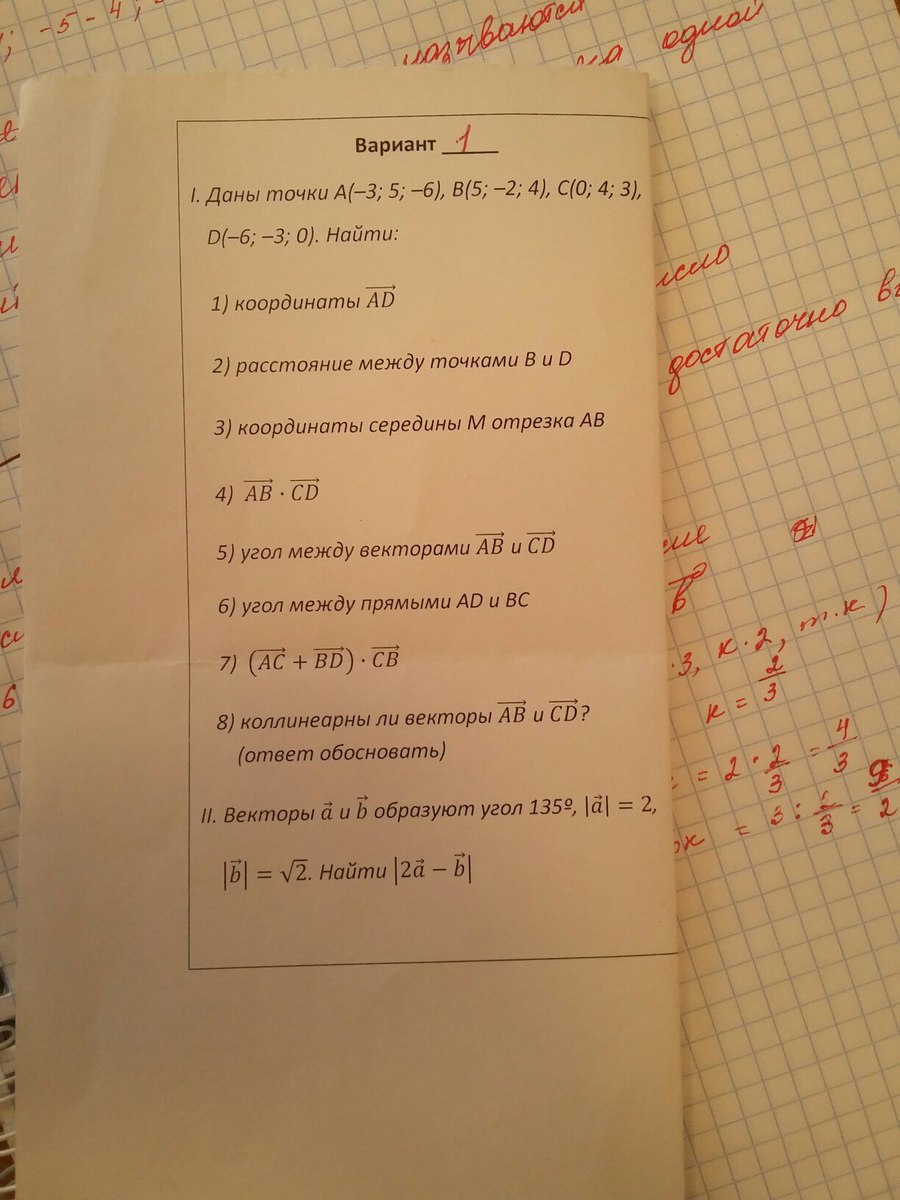 ; -5-4;
называются
на одной
Вариант 1
I. Даны точки A(–3; 5; –6), B(5; –2; 4), C(0; 4; 3),
D(–6; –3; 0). Найти:
1) координаты \overrightarrow{AD}
2) расстояние между точками B и D
3) координаты середины M отрезка AB
4) \overrightarrow{AB} · \overrightarrow{CD}
5) угол между векторами \overrightarrow{AB} и \overrightarrow{CD}
6) угол между прямыми AD и BC
7) (\overrightarrow{AC} + \overrightarrow{BD}) · \overrightarrow{CB}
8) коллинеарны ли векторы \overrightarrow{AB} и \overrightarrow{CD}?
(ответ обосновать)
II. Векторы \vec{a} и \vec{b} образуют угол 135º, |\vec{a}| = 2,
|\vec{b}| = √2. Найти |2\vec{a} − \vec{b}|
достаточно
\vec{b}
·3, к·2, т·к)
к = 2/3
= 2 · 2/3 = 4/3
6